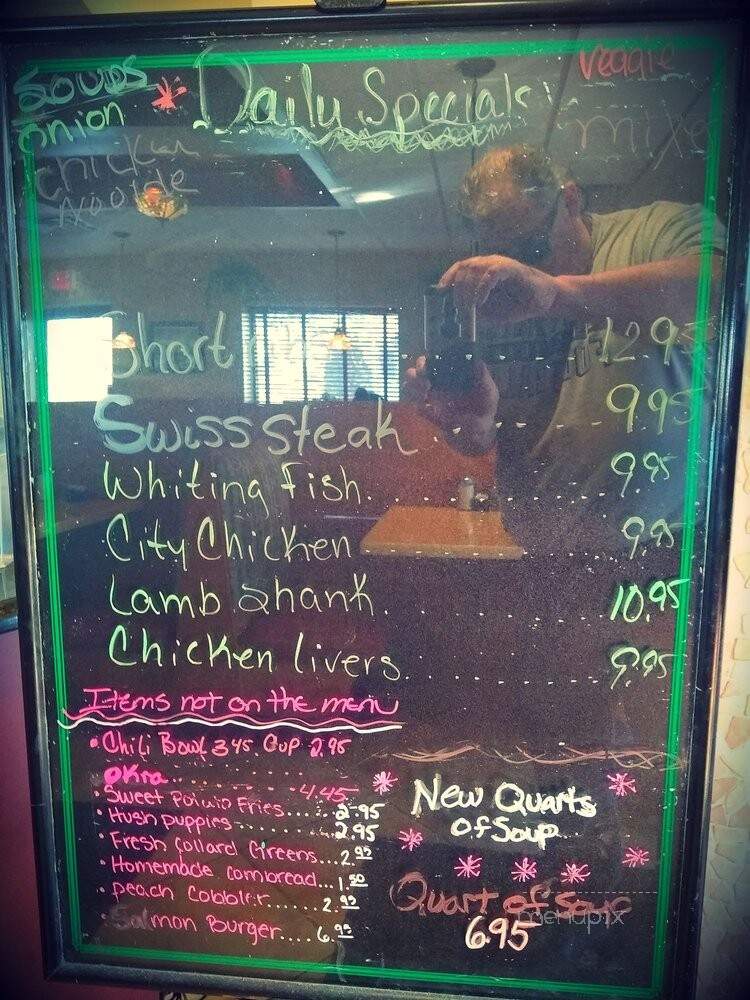 Soups
onion
chicken
noodle
Daily Specials
veggie
Short ribs 12.95
Swiss steak 9.95
Whiting fish 9.95
City Chicken 9.95
Lamb Shank 10.95
Chicken livers 9.95
Items not on the menu
Chili Bowl 3.45 Cup 2.95
Okra 4.45
Sweet Potato Fries 2.95
Hush puppies 2.95
Fresh Collard Greens 2.95
Homemade cornbread 1.50
peach Cobbler 2.95
Salmon Burger 6.95
New Quarts
of Soup
Quart of Soup
6.95
menupix